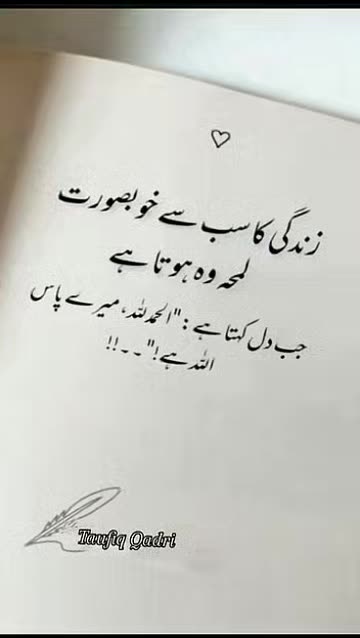 زندگی کا سب سے خوبصورت
لمحہ وہ ہوتا ہے
جب دل کہتا ہے: "الحمدللہ، میرے پاس
اللہ ہے!"۔۔۔!!
Taufiq Qadri